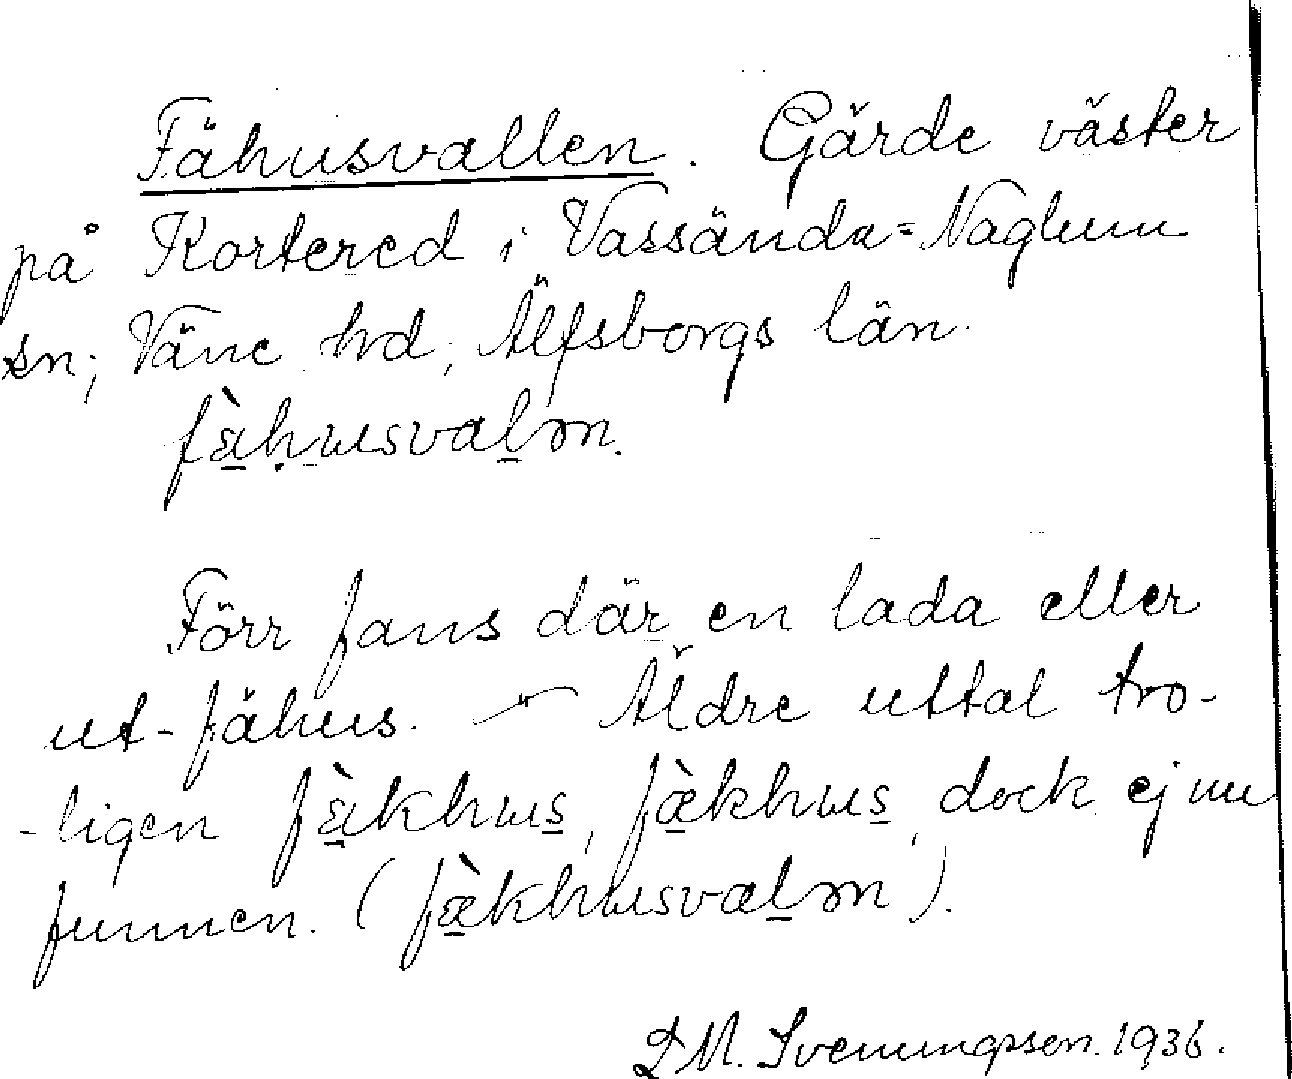 Fähusvallen. Gärde väster
på Kortered i Vassända-Naglum
sn; Väne hd, Älfsborgs län.
fàhusvaln.
Förr fans där en lada eller
ut-fähus. - Äldre uttal tro-
-ligen fàkhus, fækhus, dock ej nu
funnen. (fækhusvaln).
D M. Svenungsson. 1936.